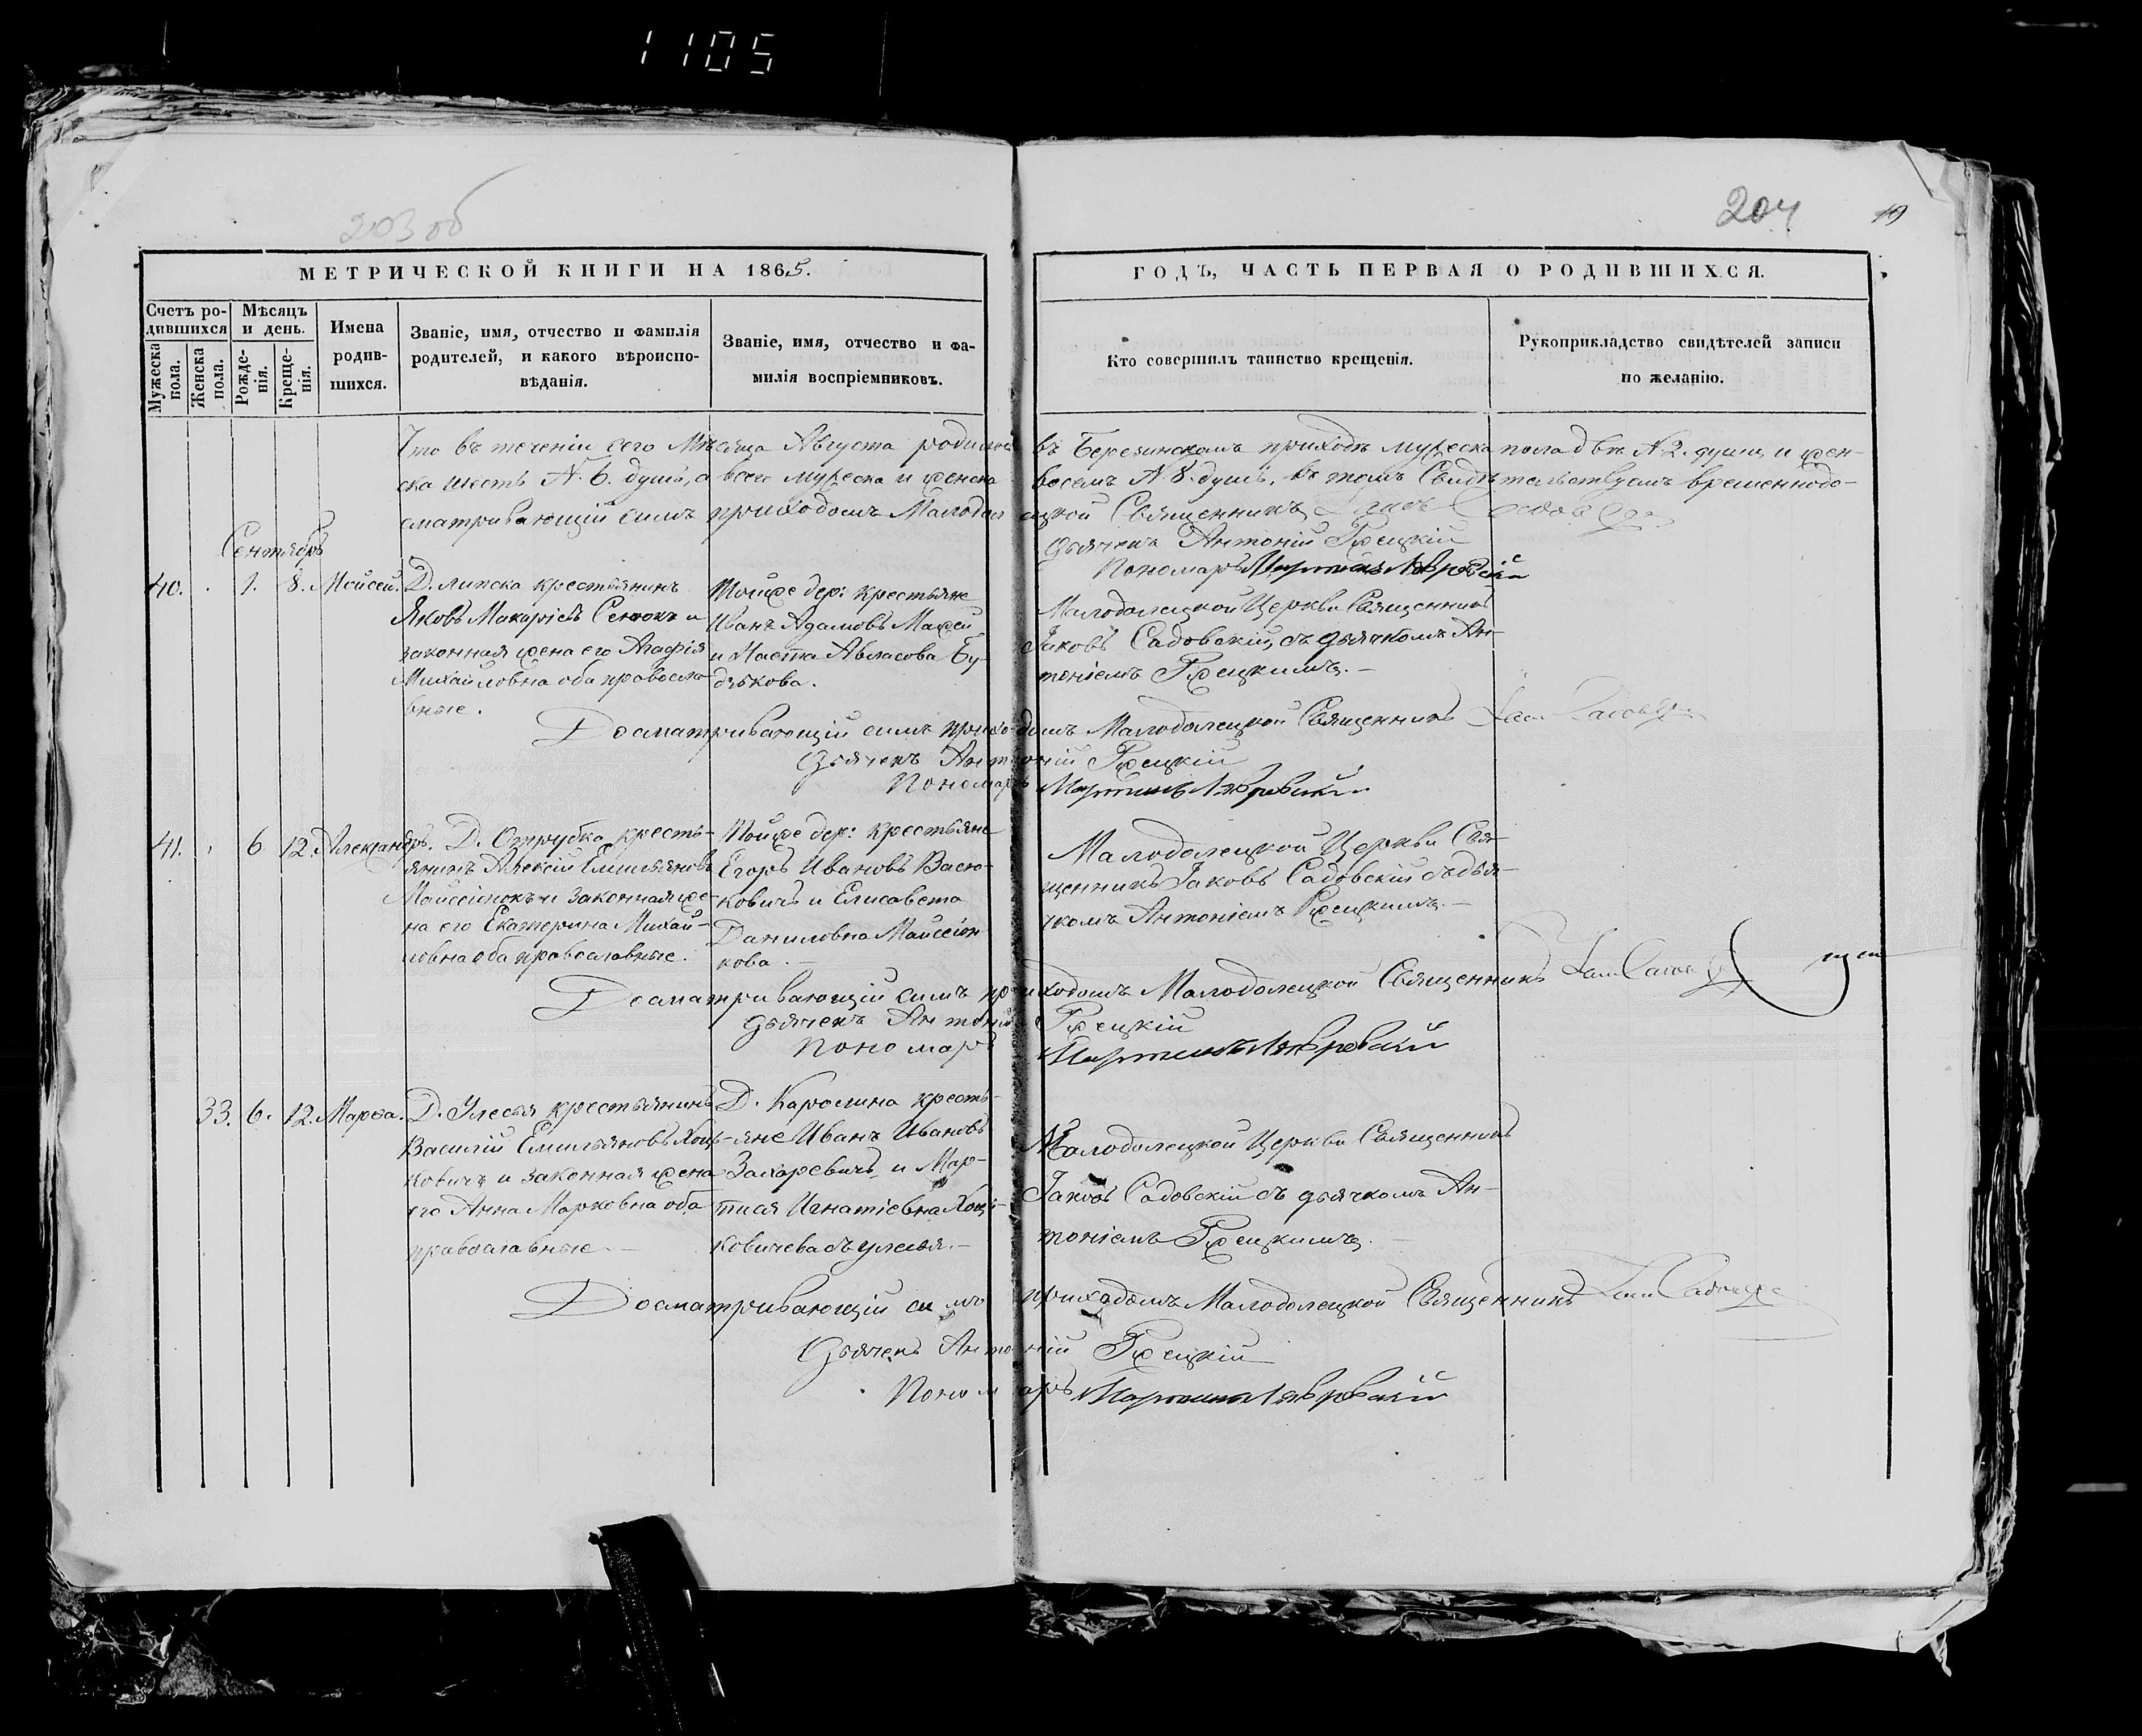 1105
203 об
204
19
МЕТРИЧЕСКОЙ КНИГИ НА 1865.
ГОДЪ, ЧАСТЬ ПЕРВАЯ О РОДИВШИХСЯ.
Счетъ ро-
дившихся
Мѣсяцъ
и день.
Имена
родив-
шихся.
Званіе, имя, отчество и фамилія
родителей, и какого вѣроиспо-
вѣданія.
Званіе, имя, отчество и фа-
милія воспріемниковъ.
Кто совершилъ таинство крещенія.
Рукоприкладство свидѣтелей записи
по желанію.
Мужеска
пола.
Женска
пола.
Рожде-
нія.
Креще-
нія.
Что въ теченіи сего Мѣсяца Августа родилось въ Березинскомъ приходѣ мужеска пола двѣ N 2. души, и жен-
ска шесть N. 6. душъ, а всего мужеска и женска восемъ N 8. душъ, въ томъ Свидѣтельствуемъ временнодо-
сматривающій симъ приходомъ Малодолецкой Священникъ
Дьячекъ Антоній Ржецкій
Пономарь
Сентябрь
40. 1. 8. Моисей.
Д. Липска крестьянинъ
Яковъ Макаріевъ Сенюкъ и
законная жена его Агафія
Михайловна оба правосла-
вные.
Тойже дер: крестьяне
Иванъ Адамовъ Мацей
и Наста Авласова Бу-
дькова.
Малодолецкой Церкви Священникъ
Іаковъ Садовскій, съ дьячкомъ Ан-
тоніемъ Ржецкимъ.-
Досматривающій симъ приходомъ Малодолецкой Священникъ
Дьячекъ Антоній Ржецкій
Пономарь
41. 6 12. Александръ.
Д. Отрубка кресть-
янинъ Алексій Емильяновъ
Майсіёнокъ и законная же-
на его Екатерина Михай-
ловна оба православные.
Тойже дер: крестьяне
Егоръ Ивановъ Васю-
ковичъ и Елисавета
Даниловна Майсіён
кова.-
Малодолецкой Церкви Свя-
щенникъ Іаковъ Садовскій съ дья-
чкомъ Антоніемъ Ржецкимъ.-
Досматривающій симъ приходомъ Малодолецкой Священникъ
Дьячекъ Антоній Ржецкій
Пономарь
33. 6. 12. Марѳа.
Д. Улесья крестьянинъ
Василій Емильяновъ Хоць-
ковичъ и законная жена
его Анна Марковна оба
православные.-
Д. Каролина кресть-
яне Иванъ Ивановъ
Захаревичъ и Мар-
тися Игнатіевна Хоць-
ковичева съ улесья.-
Малодолецкой Церкви Священникъ
Іаковъ Садовскій съ дьячкомъ Ан-
тоніемъ Ржецкимъ.-
Досматривающій симъ приходомъ Малодолецкой Священникъ
Дьячекъ Антоній Ржецкій
Пономарь